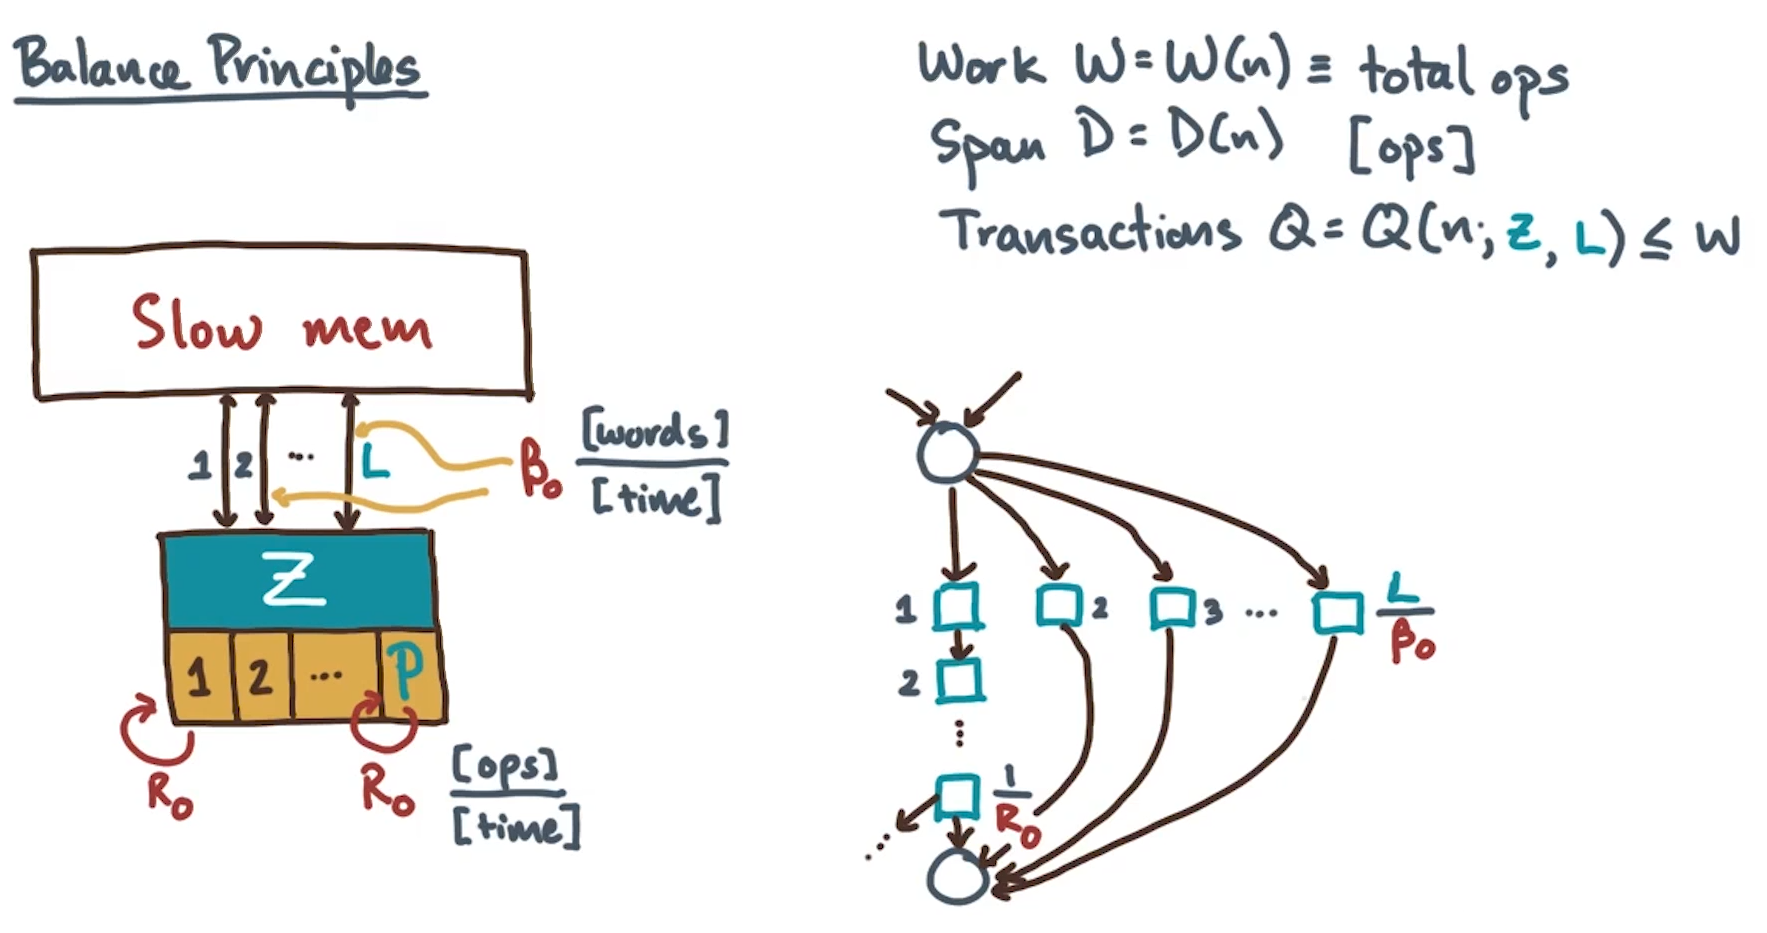 Balance Principles
Work W = W(n) ≡ total ops
Span D = D(n) [ops]
Transactions Q = Q(n; Z, L) ≤ W
Slow mem
1 2 ... L
β₀ [words]
[time]
Z
1 2 ... P
R₀ R₀ [ops]
[time]
1 2 3 ... L
β₀
2
⋮
1
R₀